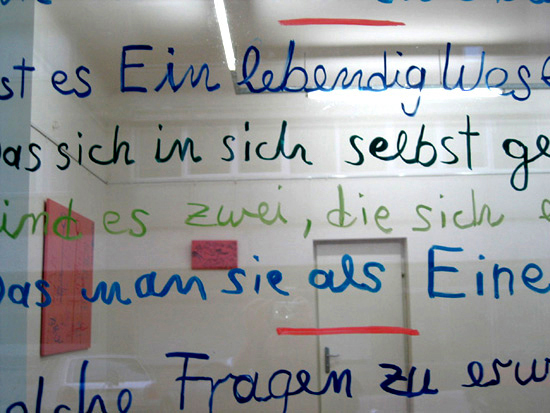 st es Ein lebendig Wes
as sich in sich selbst ge
ind es zwei, die sich e
Das man sie als Eine
olche Fragen zu erw